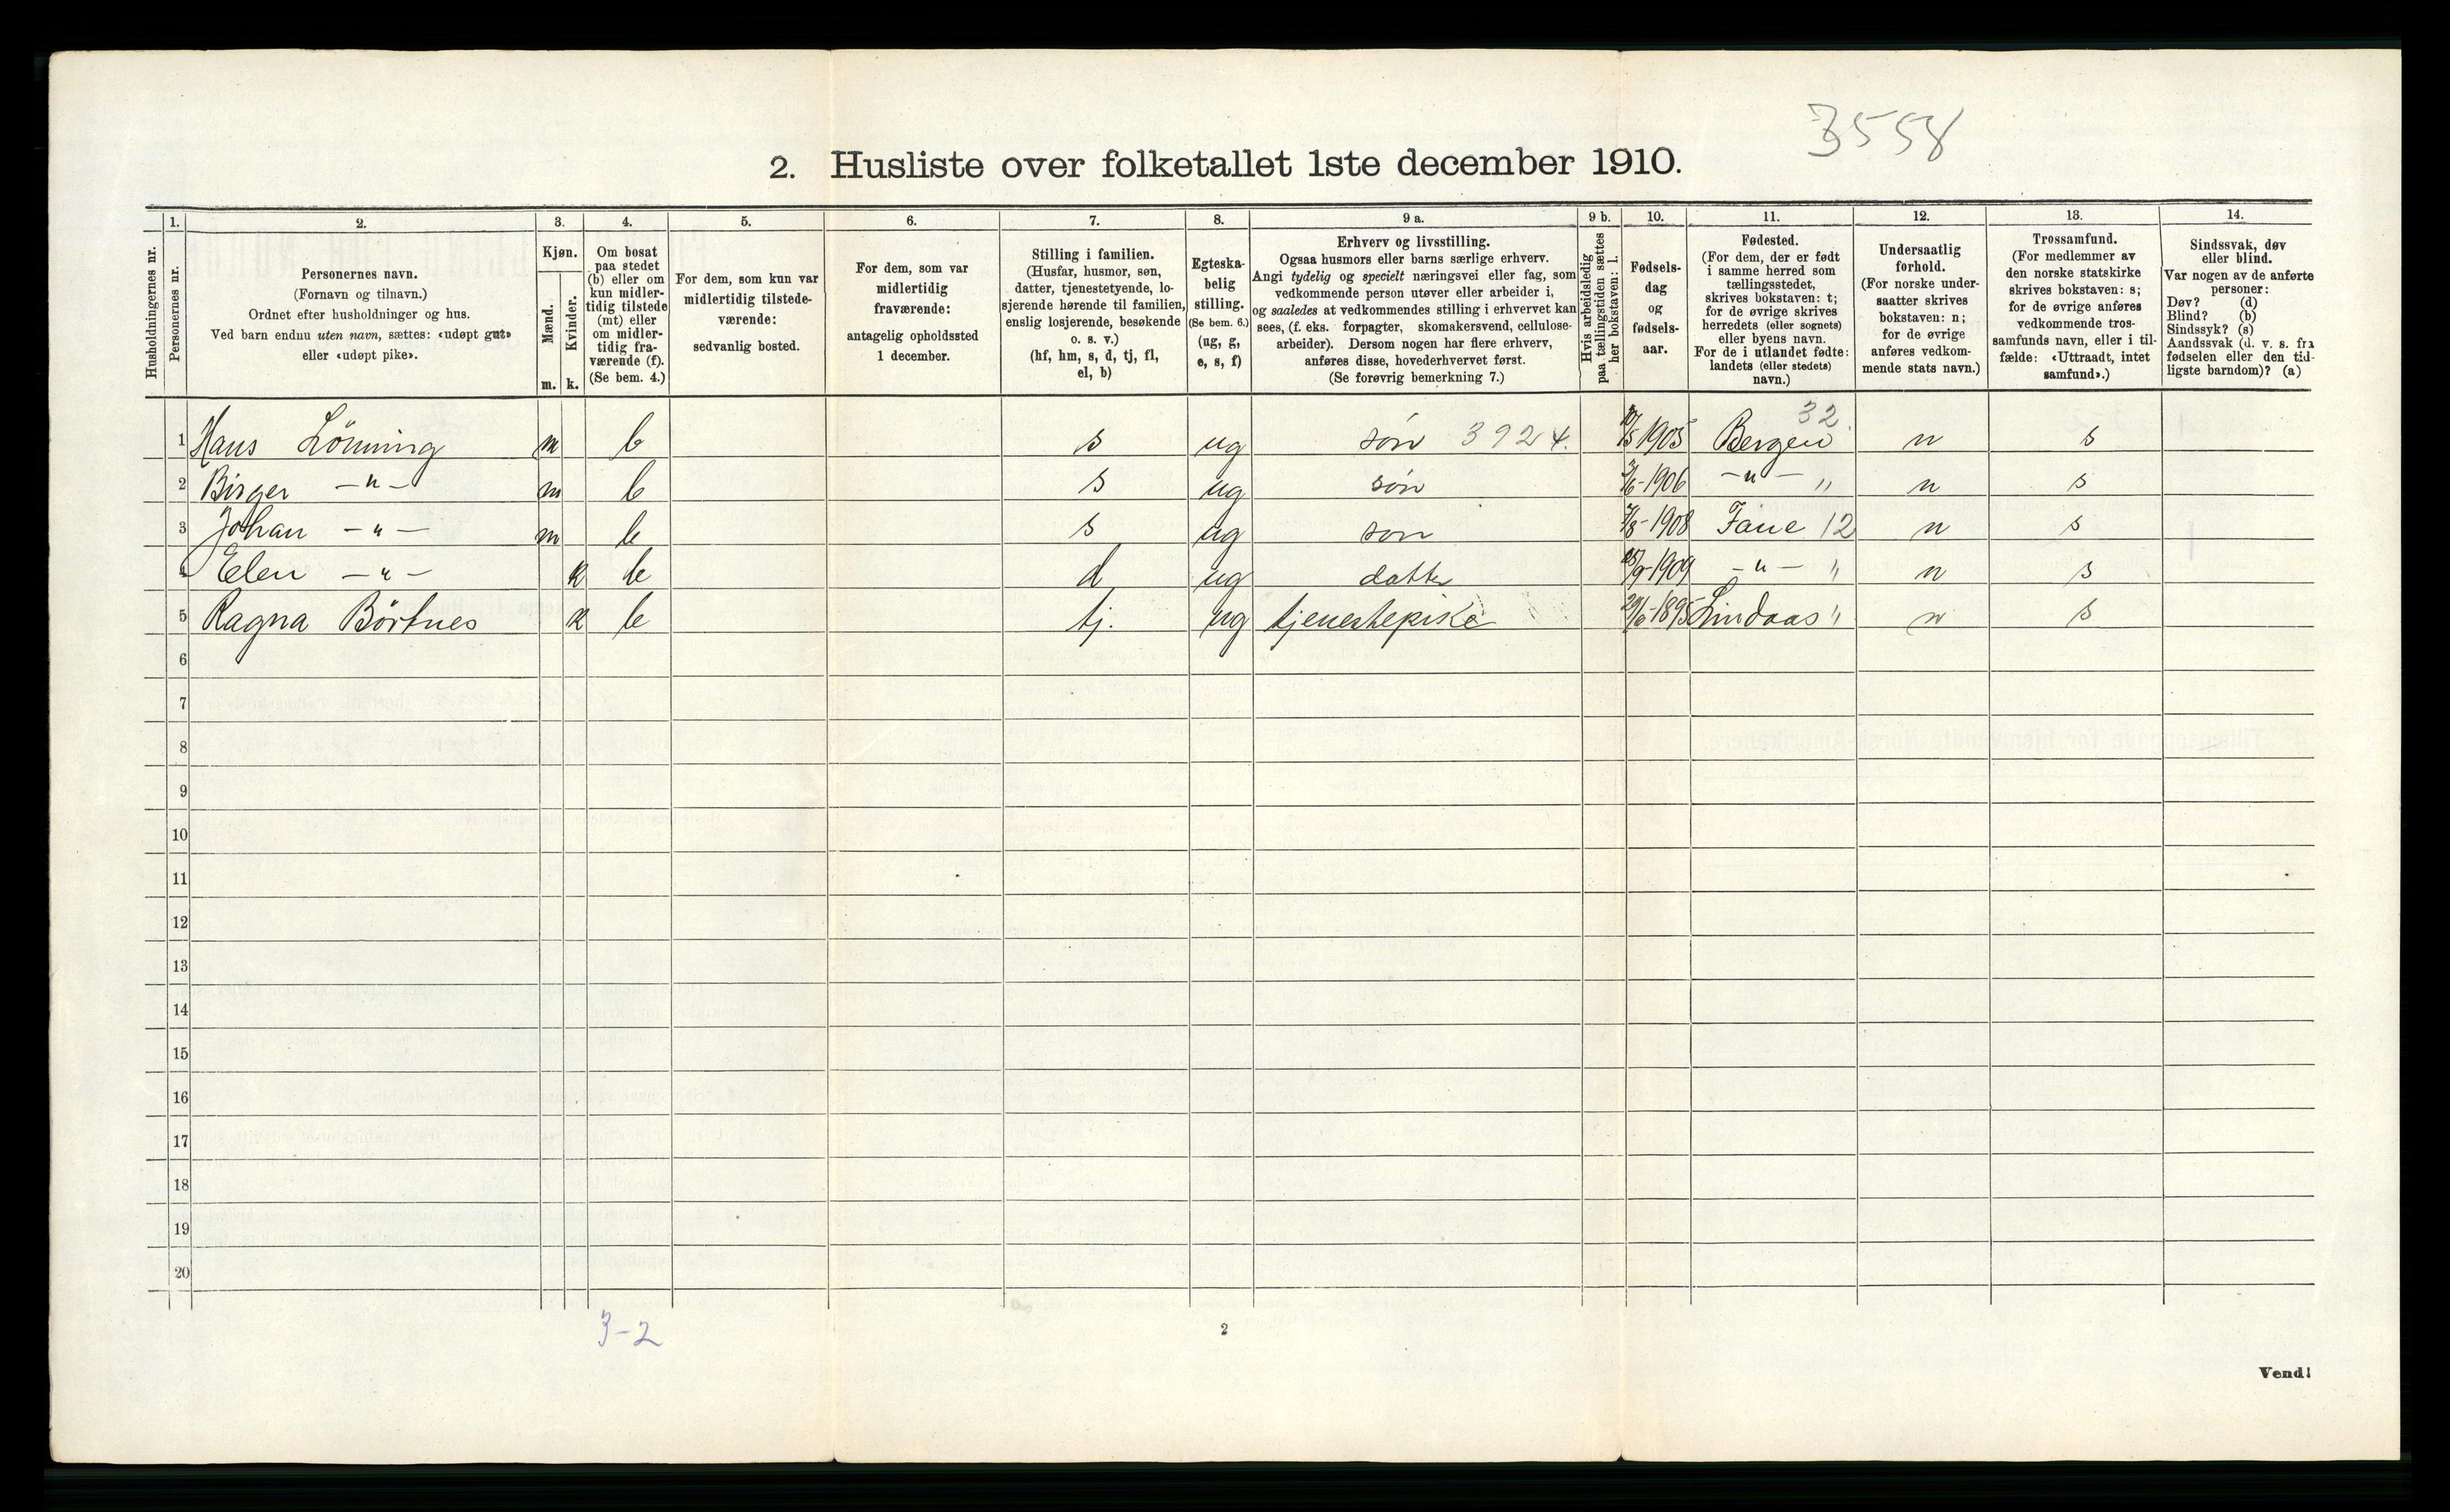 3558
2. Husliste over folketallet 1ste december 1910.
Husholdningernes nr.
1.
Personernes nr.
2.
Personernes navn.
(Fornavn og tilnavn.)
Ordnet efter husholdninger og hus.
Ved barn endnu uten navn, sættes: «udøpt gut»
eller «udøpt pike».
3.
Kjøn.
Mænd.
m.
Kvinder.
k.
4.
Om bosat
paa stedet
(b) eller om
kun midler-
tidig tilstede
(mt) eller
om midler-
tidig fra-
værende (f).
(Se bem. 4.)
5.
For dem, som kun var
midlertidig tilstede-
værende:
sedvanlig bosted.
6.
For dem, som var
midlertidig
fraværende:
antagelig opholdssted
1 december.
7.
Stilling i familien.
(Husfar, husmor, søn,
datter, tjenestetyende, lo-
sjerende hørende til familien,
enslig losjerende, besøkende
o. s. v.)
(hf, hm, s, d, tj, fl,
el, b)
8.
Egteska-
belig
stilling.
(Se bem. 6.)
(ug, g,
e, s, f)
9 a.
Erhverv og livsstilling.
Ogsaa husmors eller barns særlige erhverv.
Angi tydelig og specielt næringsvei eller fag, som
vedkommende person utøver eller arbeider i,
og saaledes at vedkommendes stilling i erhvervet kan
sees, (f. eks. forpagter, skomakersvend, cellulose-
arbeider). Dersom nogen har flere erhverv,
anføres disse, hovederhvervet først.
(Se forøvrig bemerkning 7.)
9 b.
Hvis arbeidsledig
paa tællingstiden sættes
her bokstaven: l.
10.
Fødsels-
dag
og
fødsels-
aar.
11.
Fødested.
(For dem, der er født
i samme herred som
tællingsstedet,
skrives bokstaven: t;
for de øvrige skrives
herredets (eller sognets)
eller byens navn.
For de i utlandet fødte:
landets (eller stedets)
navn.)
12.
Undersaatlig
forhold.
(For norske under-
saatter skrives
bokstaven: n;
for de øvrige
anføres vedkom-
mende stats navn.)
13.
Trossamfund.
(For medlemmer av
den norske statskirke
skrives bokstaven: s;
for de øvrige anføres
vedkommende tros-
samfunds navn, eller i til-
fælde: «Uttraadt, intet
samfund».)
14.
Sindssvak, døv
eller blind.
Var nogen av de anførte
personer:
Døv? (d)
Blind? (b)
Sindssyk? (s)
Aandssvak (d. v. s. fra
fødselen eller den tid-
ligste barndom)? (a)
32
1 Hans Lönning m b s ug søn 3924. 1905 Bergen n s
2 Birger -"- m b s ug søn 1906 -"- " n s
3 Johan -"- m b s ug søn 7/8-1908 Fane 12 n s
4 Elen -"- k b d ug datter 1909 -"- " n s
5 Ragna Börtnes k b tj. ug tjenestepike 29/6-1895 Lindaas " n s
6
7
8
9
10
11
12
13
14
15
16
17
18
19
20
3-2
2
Vend!